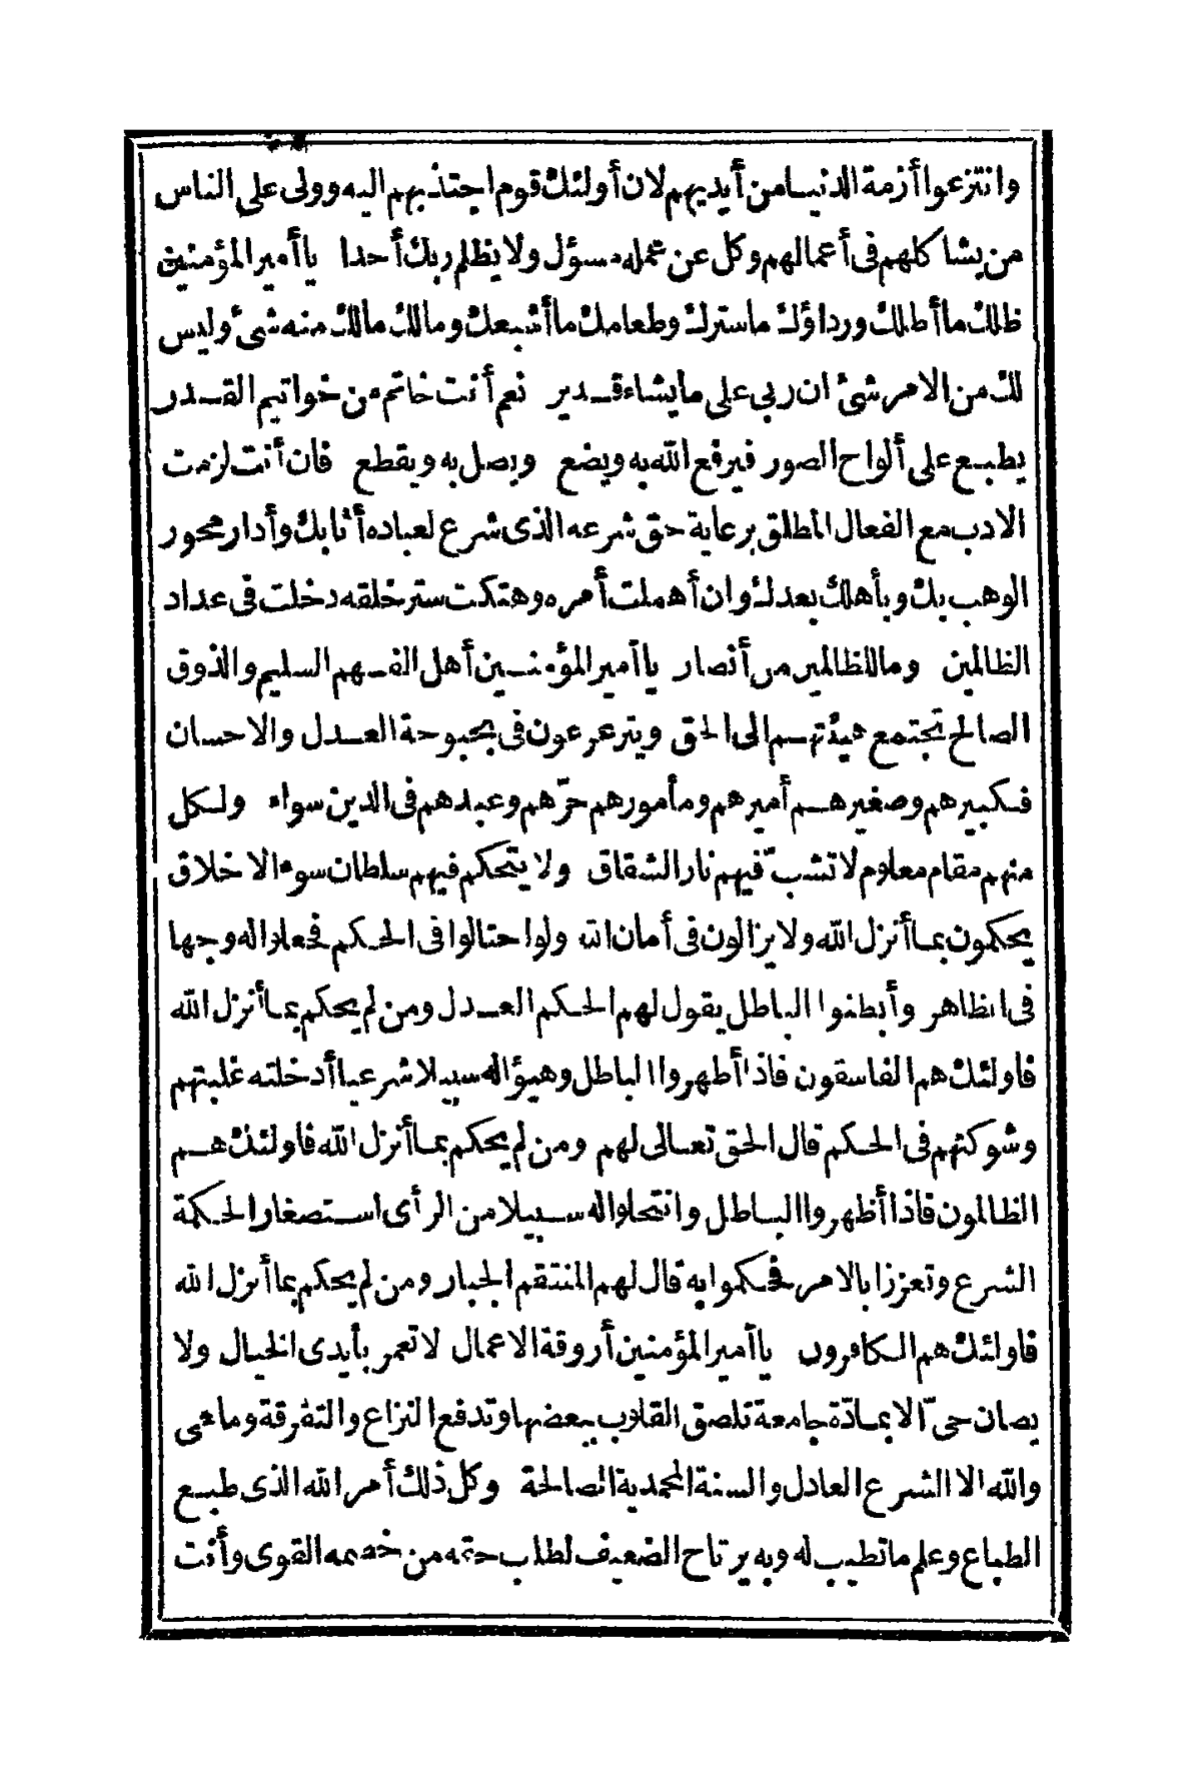 وانتزعوا أزمة الدنيا من أيديهم لان أولئك قوم اجتذبهم اليه وولى على الناس
من يشاكلهم فى أعمالهم وكل عن عمله مسؤل ولا يظلم ربك أحدا يا أمير المؤمنين
ظلك ما أظلك ورداؤك ما سترك وطعامك ما أشبعك ومالك مالك منه شئ وليس
لك من الامر شئ ان ربى على ما يشاء قدير نعم أنت خاتم من خواتيم القدر
يطبع على ألواح الصور فيرفع الله به ويضع ويصل به ويقطع فان أنت لزمت
الادب مع الفعال المطلق برعاية حق شرعه الذى شرع لعباده أثابك وأدار محور
الوهب بك وبأهلك بعدك وان أهملت أمره وهتكت ستر خلقه دخلت فى عداد
الظالمين وما للظالمين من أنصار يا أمير المؤمنين أهل الفهم السليم والذوق
الصالح تجتمع هيئتهم الى الحق ويترعرعون فى بحبوحة العدل والاحسان
فكبيرهم وصغيرهم أميرهم ومأمورهم حرّهم وعبدهم فى الدين سواء ولكل
منهم مقام معلوم لا تشبّ فيهم نار الشقاق ولا يتحكم فيهم سلطان سوء الاخلاق
يحكمون بما أنزل الله ولا يزالون فى أمان الله ولو احتالوا فى الحكم فجعلوا له وجها
فى الظاهر وأبطنوا الباطل يقول لهم الحكم العدل ومن لم يحكم بما أنزل الله
فاولئك هم الفاسقون فاذا أظهروا الباطل وهيؤا له سبيلا شرعيا أدخلته غلبتهم
وشوكتهم فى الحكم قال الحق تعالى لهم ومن لم يحكم بما أنزل الله فاولئك هم
الظالمون فاذا أظهروا الباطل وانتحلوا له سبيلا من الرأى استصغارا لحكمة
الشرع وتعززا بالامر فحكموا به قال لهم المنتقم الجبار ومن لم يحكم بما أنزل الله
فاولئك هم الكافرون يا أمير المؤمنين أروقة الاعمال لا تعمر بأيدى الخيال ولا
يصان حىّ الا بمادّة جامعة تلصق القلوب ببعضها وتدفع النزاع والتفرقة وما هى
والله الا الشرع العادل والسنة المحمدية الصالحة وكل ذلك أمر الله الذى طبع
الطباع وعلم ما تطيب له وبه يرتاح الضعيف لطلب حقه من خصمه القوى وأنت